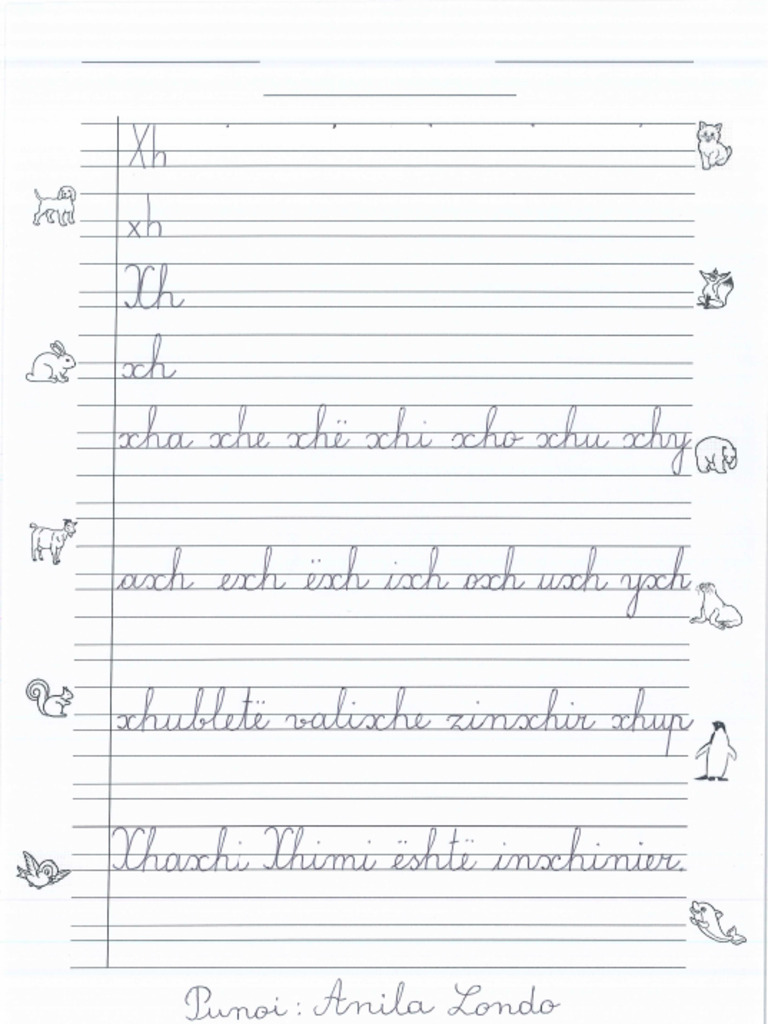 Xh
xh
Xh
xh
xha xhe xhë xhi xho xhu xhy
axh exh ëxh ixh oxh uxh yxh
xhubletë valixhe zinxhir xhup
Xhaxhi Xhimi është inxhinier.
Punoi: Anila Londo